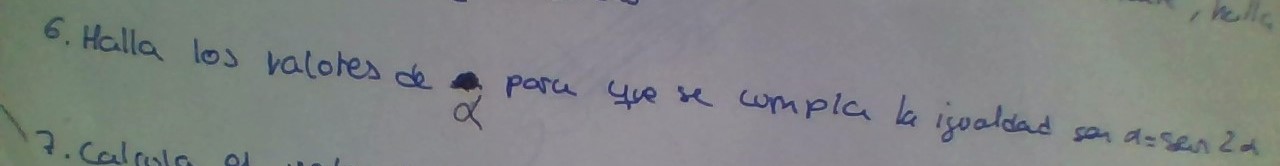 , halla
6. Halla los valores de α para que se cumpla la igualdad sen α = sen 2α
7. Calcula el